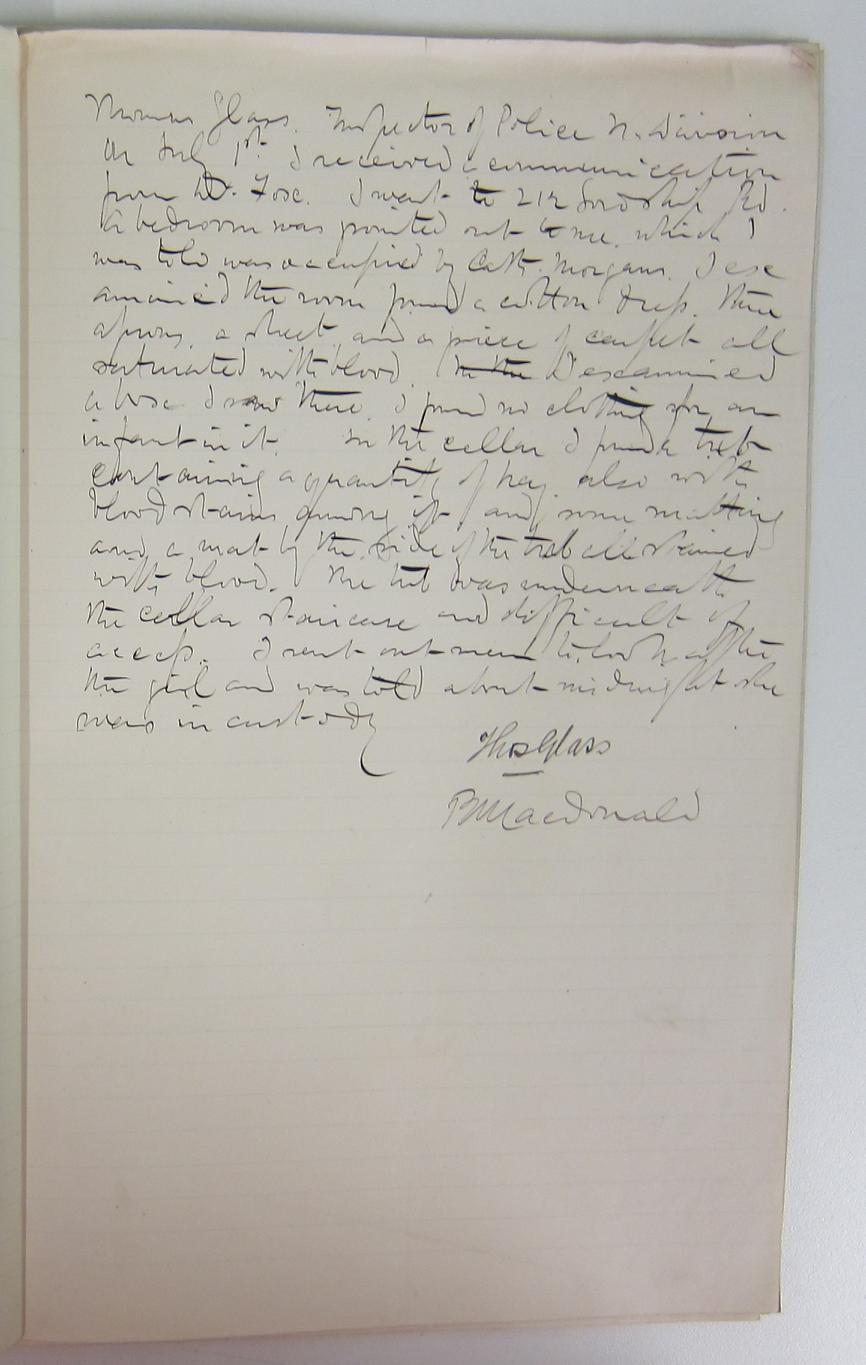 Thomas Glass. Inspector of Police N. Division
On July 1st. I received a communication
from Dr. Fox. I went to 212 Lordship Rd.
A bedroom was pointed out to me, which I
was told was occupied by Cath. Morgans. I ex
amined the room found a cotton dress. three
aprons, a sheet, and a piece of carpet all
saturated with blood. In the I examined
a box I saw there. I found no clothing for an
infant in it. In the cellar I found a tub
containing a quantity of hay also with
blood stains among it, and some matting
and a mat by the side of the tub all stained
with blood. The tub was underneath
the cellar staircase and difficult of
access. I sent out men to look after
the girl and was told about midnight she
was in custody
Thos Glass
Macdonald